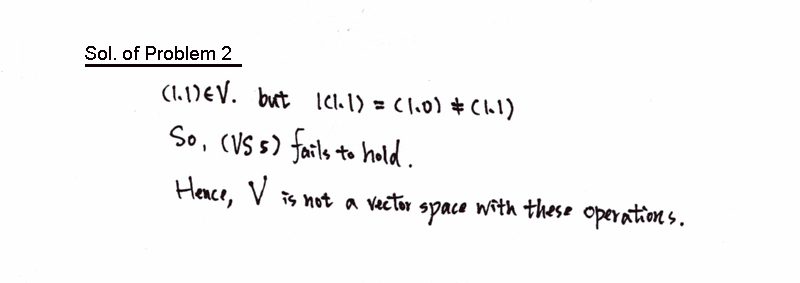 Sol. of Problem 2
(1.1)∈V. but 1(1.1) = (1.0) ≠ (1.1)
So, (VS 5) fails to hold.
Hence, V is not a vector space with these operations.